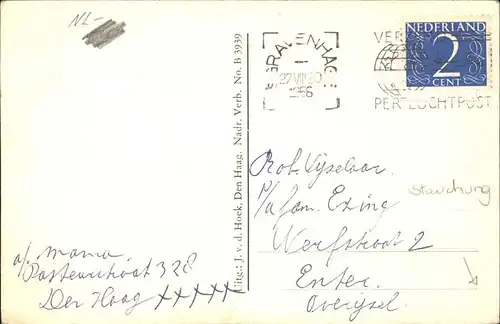 NL-
'S GRAVENHAGE
1956
VER
PER LUCHTPOST
NEDERLAND
2
CENT
Uitg.: J. v. d. Hoek, Den Haag. Nadr. Verb. No. B 3939
Rob
p/a fam. Exing
Werfstraat 2
Enter.
Overijsel.
Stauchung
af. mama
Pasteurstraat 328
Den Haag xxxxx